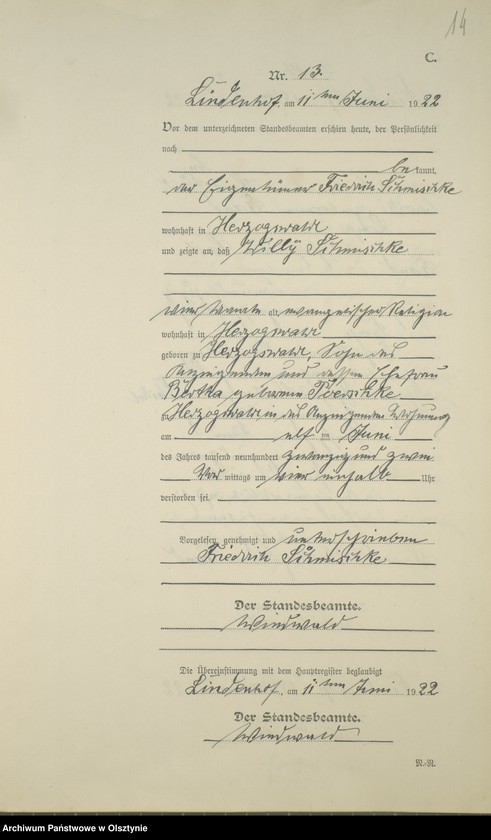 14
C.
Nr. 13.
Lindenhof, am 11ten Juni 1922
Vor dem unterzeichneten Standesbeamten erschien heute, der Persönlichkeit
nach
bekannt,
der Eigentümer Friedrich Schmischke
wohnhaft in Herzogswalde
und zeigte an, daß Willy Schmischke
vier Monate alt, evangelischer Religion
wohnhaft in Herzogswalde
geboren zu Herzogswalde, Sohn des
Anzeigenden und dessen Ehefrau
Bertha geborenen
zu Herzogswalde, in des Anzeigenden Wohnung
am elften Juni
des Jahres tausend neunhundert zwanzig und zwei
Vor mittags um vier einhalb Uhr
verstorben sei.
Vorgelesen, genehmigt und unterschrieben
Friedrich Schmischke
Der Standesbeamte.
Windwald
Die Übereinstimmung mit dem Hauptregister beglaubigt
Lindenhof, am 11ten Juni 1922
Der Standesbeamte.
Windwald
R.-R.
Archiwum Państwowe w Olsztynie